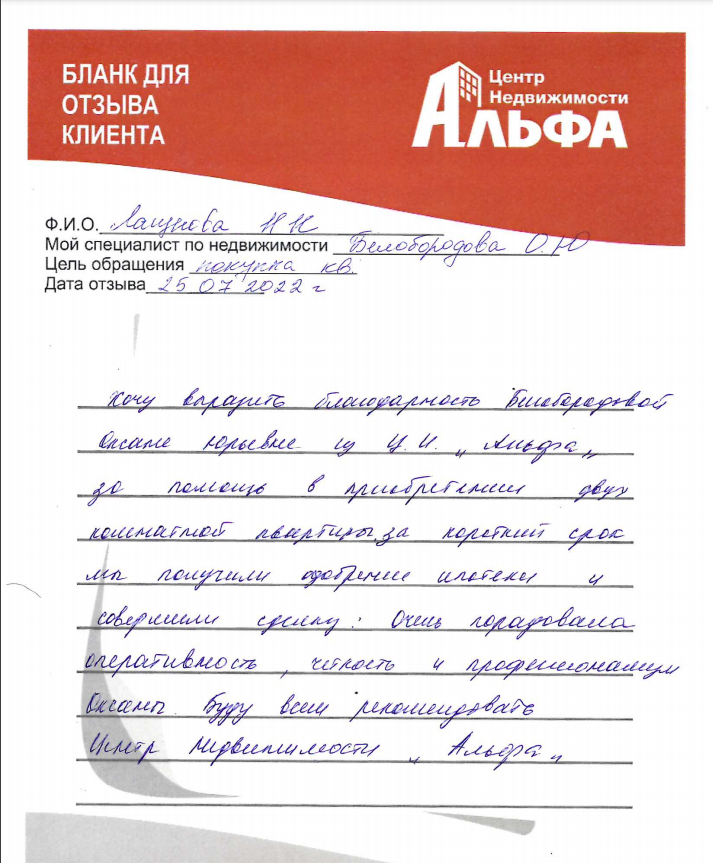 БЛАНК ДЛЯ
ОТЗЫВА
КЛИЕНТА
Центр
Недвижимости
АЛЬФА
Ф.И.О. Н Н
Мой специалист по недвижимости Белобородова О.Ю
Цель обращения покупка кв.
Дата отзыва 25 07 2022 г
Хочу выразить благодарность Белобородовой
Оксане Юрьевне из Ц.Н. „Альфа„
за помощь в приобретении двух
комнатной квартиры, за короткий срок
мы получили одобрение ипотеки и
совершили сделку. Очень порадовала
оперативность, чёткость и профессионализм
Оксаны. Буду всем рекомендовать
Центр Недвижимости „Альфа„